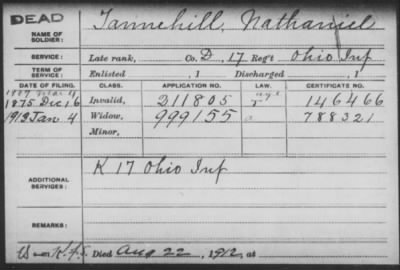 DEAD
NAME OF SOLDIER: Tannehill, Nathaniel
SERVICE: Late rank, Co. D, 17 Reg't Ohio Inf
TERM OF SERVICE: Enlisted , 1 Discharged , 1
DATE OF FILING. CLASS. APPLICATION NO. LAW. CERTIFICATE NO.
1875 Dec 16 Invalid, 211805 146466
1912 Jan 4 Widow, 999155 788321
Minor,
ADDITIONAL SERVICES: K 17 Ohio Inf
REMARKS:
Died Aug 22, 1912, at